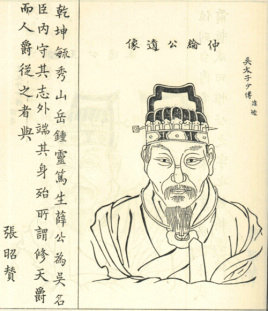 吳太子少傅
仲綸公遺像
乾坤毓秀山岳鍾靈篤生薛公為吳名
臣內守其志外端其身殆所謂修天爵
而人爵從之者與
張昭贊